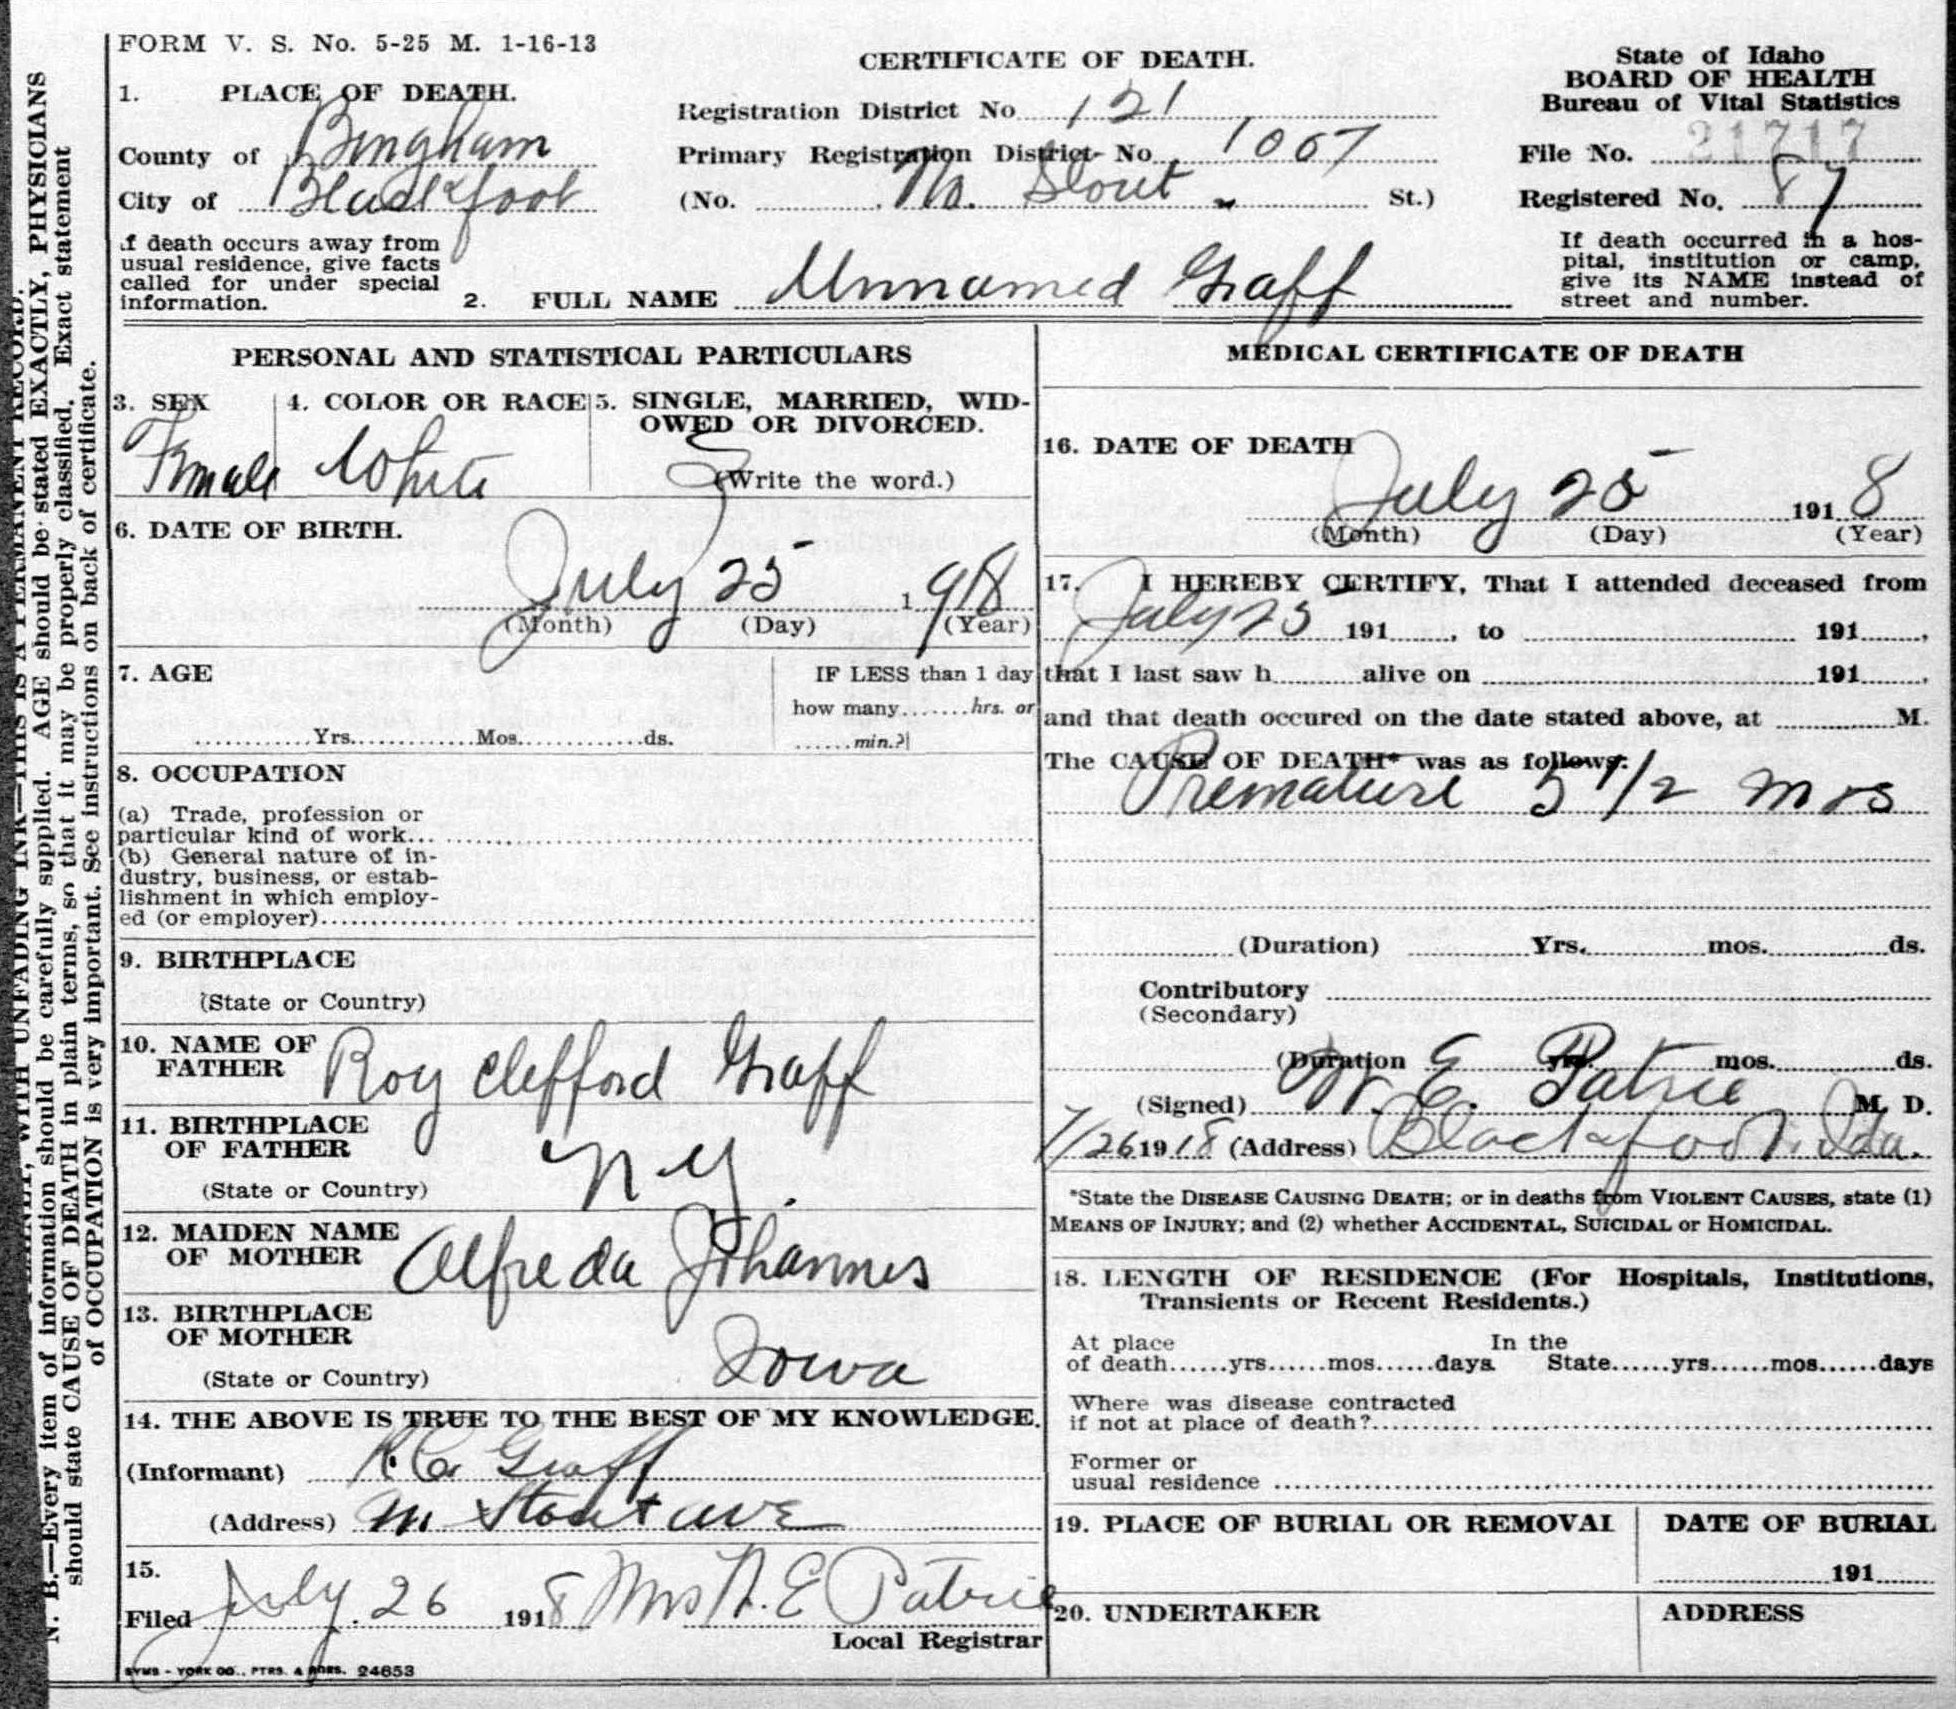 FORM V. S. No. 5-25 M. 1-16-13
CERTIFICATE OF DEATH.
State of Idaho
BOARD OF HEALTH
Bureau of Vital Statistics
1. PLACE OF DEATH.
County of Bingham
City of Blackfoot
Registration District No. 121
Primary Registration District No. 1007
(No. No. Stout St.)
File No. 21717
Registered No. 87
If death occurs away from
usual residence, give facts
called for under special
information.
2. FULL NAME Unnamed Graff
If death occurred in a hos-
pital, institution or camp,
give its NAME instead of
street and number.
PERSONAL AND STATISTICAL PARTICULARS
3. SEX
Female
4. COLOR OR RACE
White
5. SINGLE, MARRIED, WID-
OWED OR DIVORCED.
S
(Write the word.)
6. DATE OF BIRTH.
July 25 1918
(Month) (Day) (Year)
7. AGE
IF LESS than 1 day
how many.......hrs. or
............Yrs............Mos............ds. ......min.?
8. OCCUPATION
(a) Trade, profession or
particular kind of work...
(b) General nature of in-
dustry, business, or estab-
lishment in which employ-
ed (or employer)
9. BIRTHPLACE
(State or Country)
10. NAME OF
FATHER Roy Clefford Graff
11. BIRTHPLACE
OF FATHER
(State or Country) N Y.
12. MAIDEN NAME
OF MOTHER Alfreda Johannes
13. BIRTHPLACE
OF MOTHER
(State or Country) Iowa
14. THE ABOVE IS TRUE TO THE BEST OF MY KNOWLEDGE.
(Informant) R. C. Graff
(Address) N. Stout ave
15.
Filed July 26 1918 Mrs W. E Patrie
Local Registrar
SYMS - YORK CO., PTRS. & BDRS. 24853
MEDICAL CERTIFICATE OF DEATH
16. DATE OF DEATH
July 25 1918
(Month) (Day) (Year)
17. I HEREBY CERTIFY, That I attended deceased from
July 25 191......, to ...... 191......,
that I last saw h......alive on ......191......,
and that death occured on the date stated above, at ......M.
The CAUSE OF DEATH* was as follows:
Premature 5 1/2 mos
(Duration) ......Yrs.......mos.......ds.
Contributory
(Secondary)
(Duration ...... yrs. ...... mos.......ds.
(Signed) W. E. Patrie M. D.
7/26 1918 (Address) Blackfoot, Ida.
*State the DISEASE CAUSING DEATH; or in deaths from VIOLENT CAUSES, state (1)
MEANS OF INJURY; and (2) whether ACCIDENTAL, SUICIDAL or HOMICIDAL.
18. LENGTH OF RESIDENCE (For Hospitals, Institutions,
Transients or Recent Residents.)
At place In the
of death......yrs......mos......days State......yrs......mos......days
Where was disease contracted
if not at place of death?
Former or
usual residence
19. PLACE OF BURIAL OR REMOVAL
DATE OF BURIAL
191
20. UNDERTAKER
ADDRESS
WITH UNFADING INK—THIS IS A PERMANENT RECORD.
N. B.—Every item of information should be carefully supplied. AGE should be stated EXACTLY, PHYSICIANS
should state CAUSE OF DEATH in plain terms, so that it may be properly classified. Exact statement
of OCCUPATION is very important. See instructions on back of certificate.